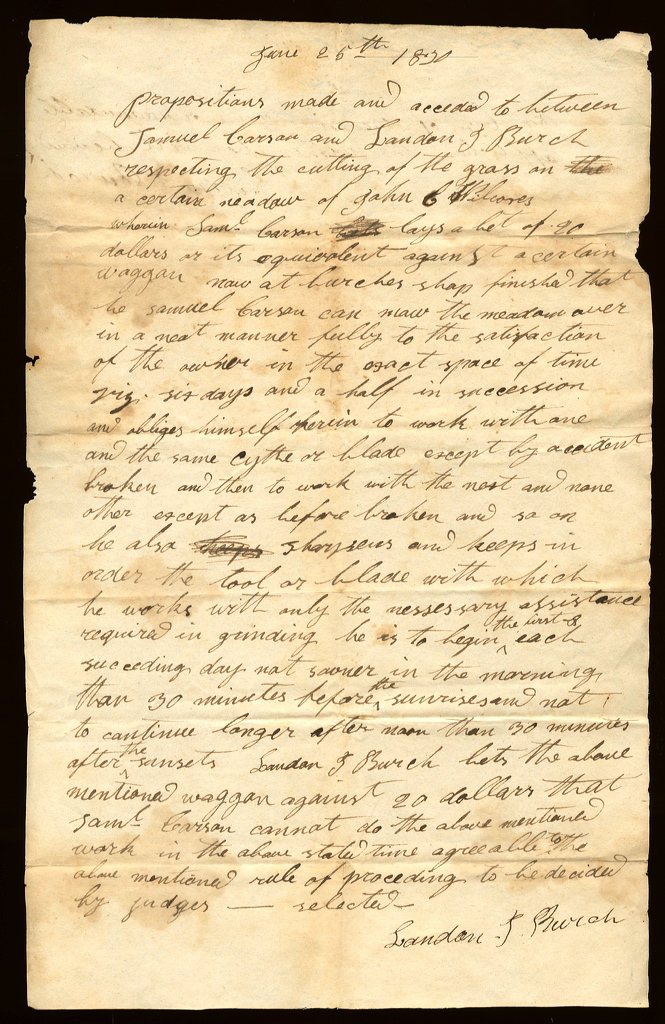 June 25th 1830
propositions made and acceded to between
Samuel Carson and Landon J Burch
respecting the cutting of the grass on the
a certain meadow of John C
wherein Saml Carson bets lays a bet of 20
dollars or its equivolent against a certain
waggan now at burches shop finished that
he Samuel Carson can mow the meadow over
in a neat manner fully to the satisfaction
of the owner in the exact space of time
viz. six days and a half in succession
and obliges himself herein to work with one
and the same cythe or blade except by accident
broken and then to work with the next and none
other except as before broken and so on
he also keeps sharpens and keeps in
order the tool or blade with which
he works with only the nessessary assistance
required in grinding he is to begin the first & each
succeeding day not sooner in the morning
than 30 minutes before the sunrises and not
to continue longer after noon than 30 minures
after the sunsets Landon J Burch bets the above
mentioned waggan against 20 dollars that
Saml Carson cannot do the above mentioned
work in the above stated time agreeable to the
above mentioned rule of proceding to be decided
by judges — selected —
Landon J. Burch